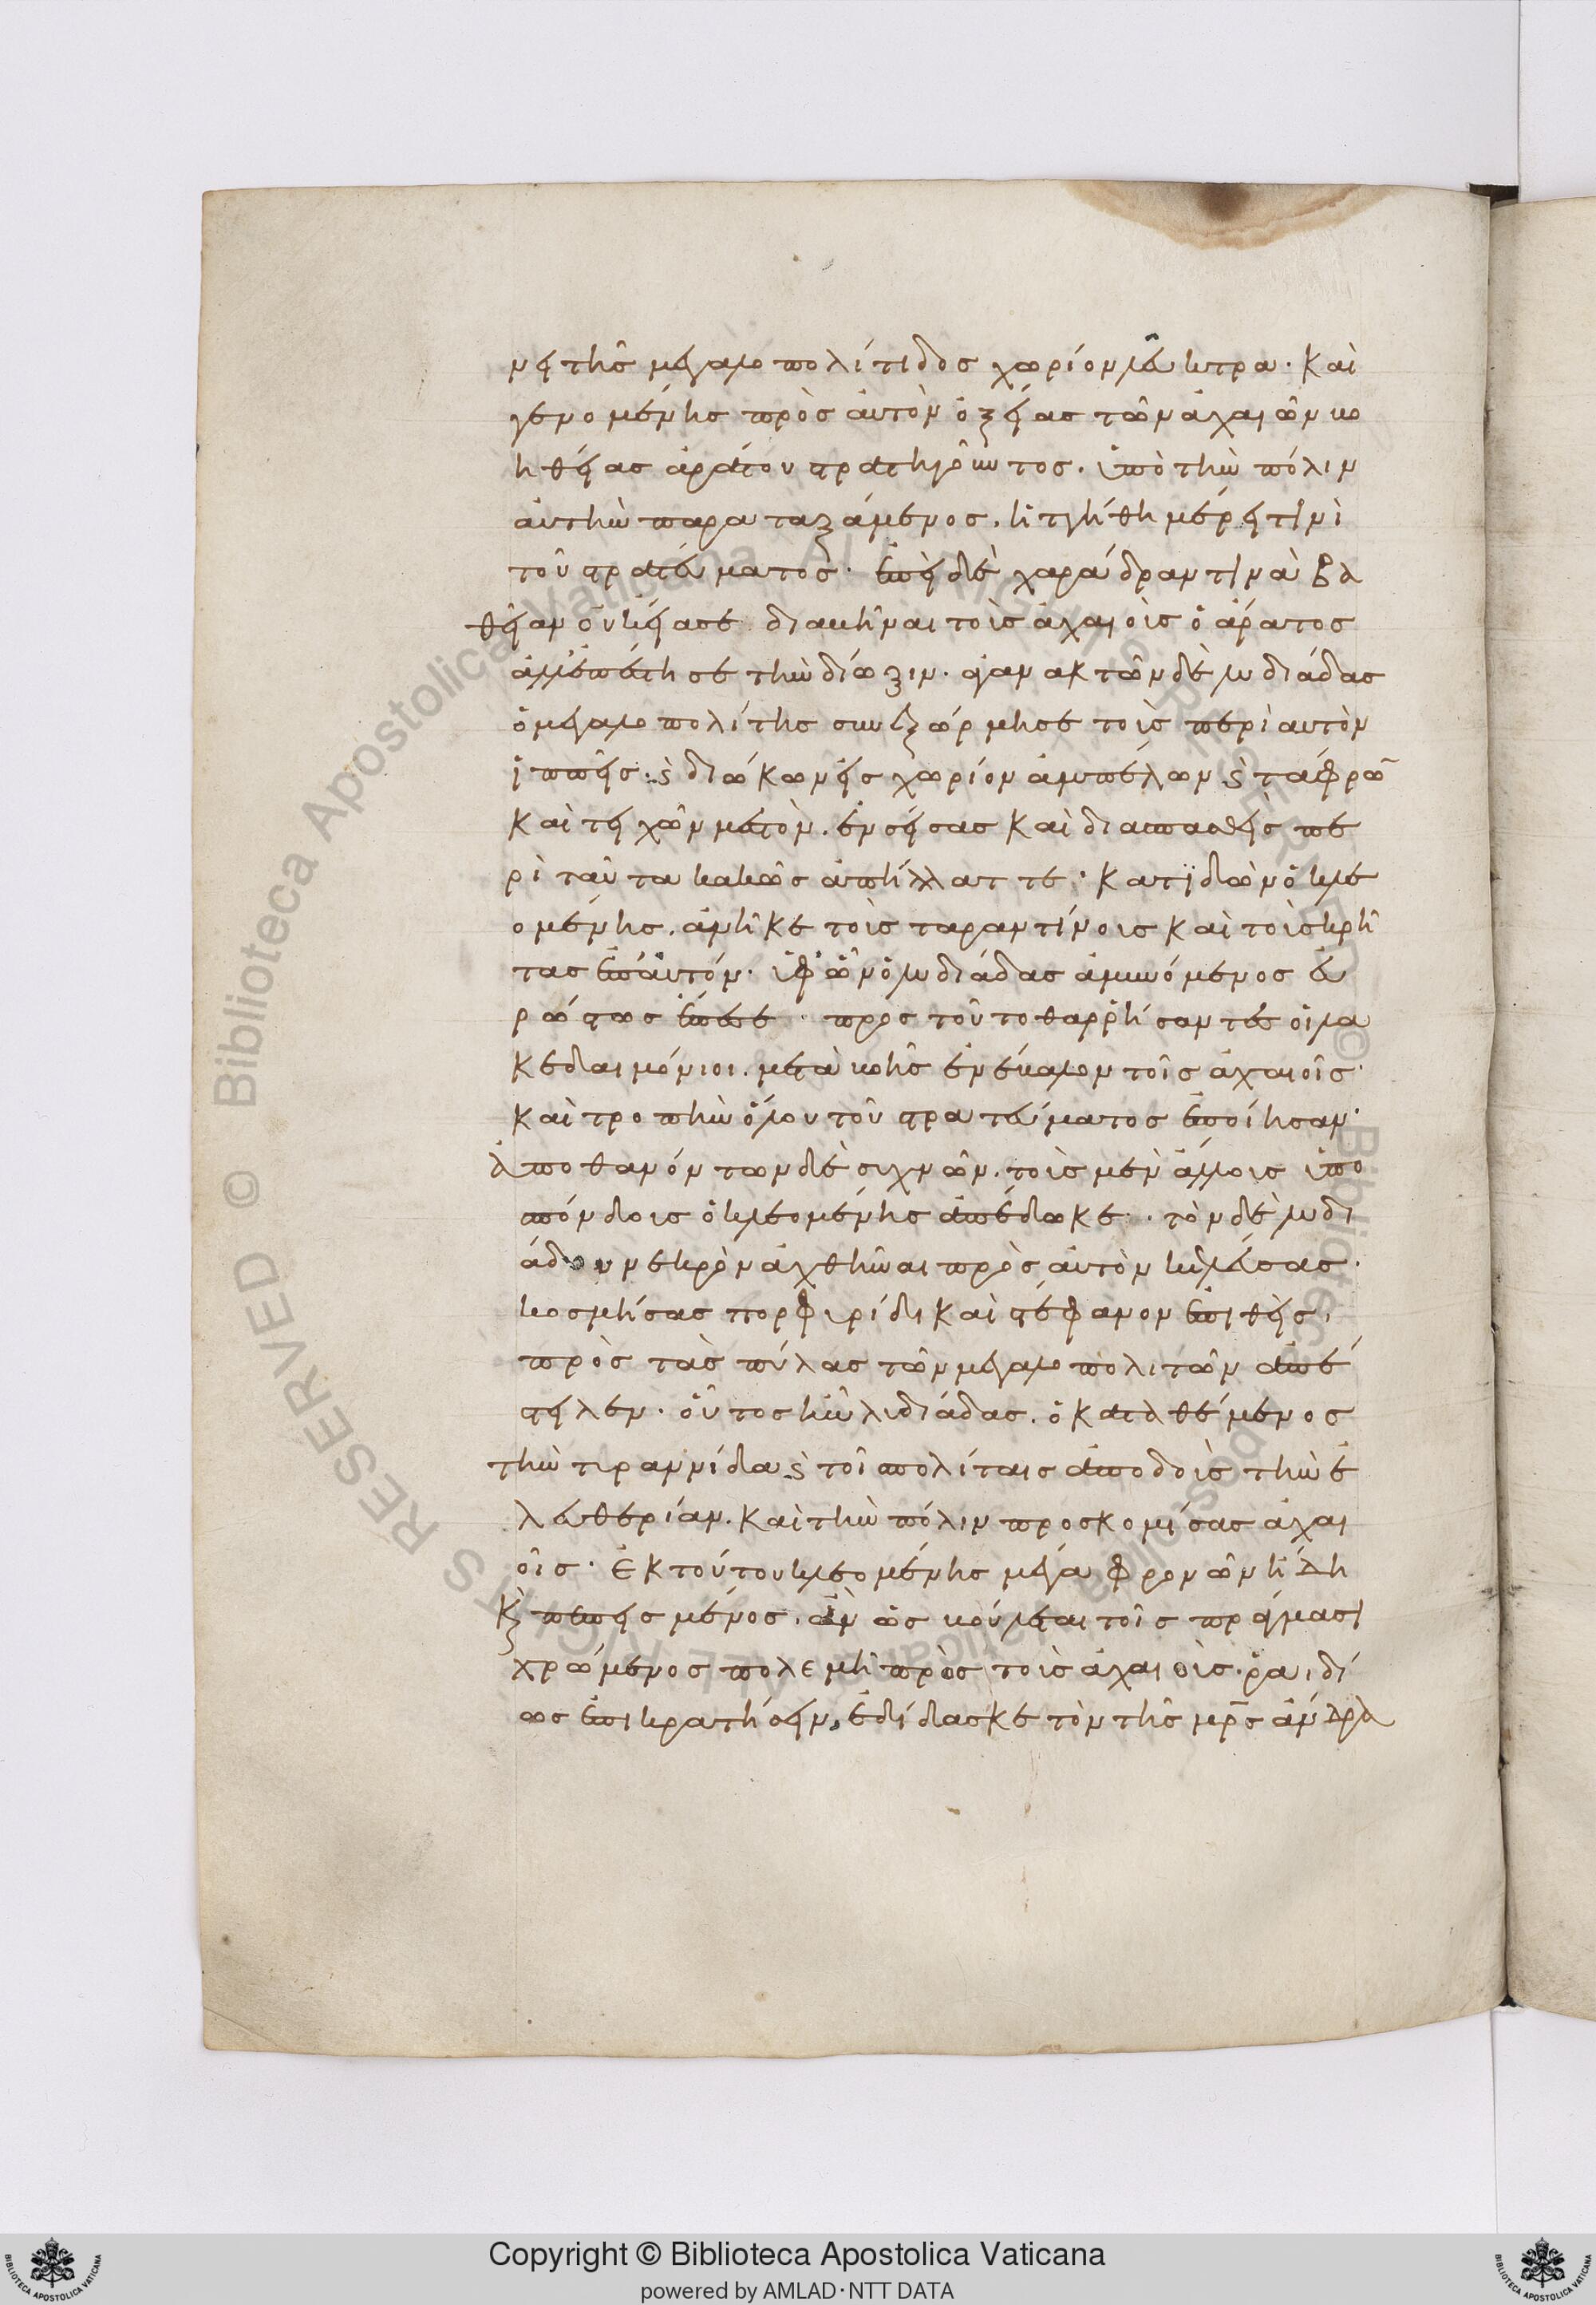 νει τῆς μεγαλοπολίτιδος χωρίον λεῦκτρα· καὶ
γενομένης πρὸς αὐτὸν ὀξείας τῶν ἀχαιῶν βο
ηθείας ἀράτου στρατηγοῦντος. ὑπὸ τὴν πόλιν
αὐτὴν παραταξάμενος. ἡττήθη μέρει τινὶ
τοῦ στρατεύματος· ἐπεὶ δὲ χαράδραν τινὰ βα
θεῖαν οὐκ εἴασε διαβῆναι τοὺς ἀχαιοὺς ὁ ἄρατος
ἀλλ' ἐπέστησε τὴν δίωξιν. ἀγανακτῶν δὲ λυδιάδας
ὁ μεγαλοπολίτης συνεξώρμησε τοὺς περὶ αὐτὸν
ἱππεῖς· καὶ διώκων εἰς χωρίον ἀμπέλων καὶ τάφρω̄
καὶ τειχῶν μεστὸν. ἐνσείσας καὶ διασπασθεὶς πε
ρὶ ταῦτα κακῶς ἀπήλλαττε· κατϊδὼν ὁ κλε
ομένης. ἀνῆκε τοὺς ταραντίνους καὶ τοὺς κρῆ
τας ἐπ' αὐτόν. ὑφ' ὧν ὁ λυδιάδας ἀμυνόμενος εὐ
ρώστως ἔπεσε· πρὸς τοῦτο θαρρήσαντες οἱ λα
κεδαιμόνιοι. μετὰ βοῆς ἐνέβαλον τοῖς ἀχαιοῖς·
καὶ τροπὴν ὅλου τοῦ στρατεύματος ἐποίησαν·
ἀποθανόντων δὲ συχνῶν. τοὺς μὲν ἄλλους ὑπο
σπόνδους ὁ κλεομένης ἀπέδωκε· τὸν δὲ λυδι
άδου νεκρὸν ἀχθῆναι πρὸς αὐτὸν κελεύσας.
κοσμήσας πορφυρίδι καὶ στέφανον ἐπιθεὶς,
πρὸς τὰς πύλας τῶν μεγαλοπολιτῶν ἀπέ
στειλεν· οὗτος ἦν λυδιάδας. ὁ καταθέμενος
τὴν τυραννίδα καὶ τοῖ πολίταις ἀποδοὺς τὴν ἐ
λευθερίαν. καὶ τὴν πόλιν προσκομίσας ἀχαι
οῖς· ἐκ τούτου κλεομένης μέγα φρονῶν ἤδη
κ̀ πεπεισμένος. ἂν ὡς βούλεται τοῖς πράγμασι
χρώμενος πολεμῆ πρὸς τοὺς ἀχαιοὺς. ῥαιδί
ως ἐπικρατήσειν, ἐδίδασκε τὸν τῆς μρ̄ς ἄνδρα